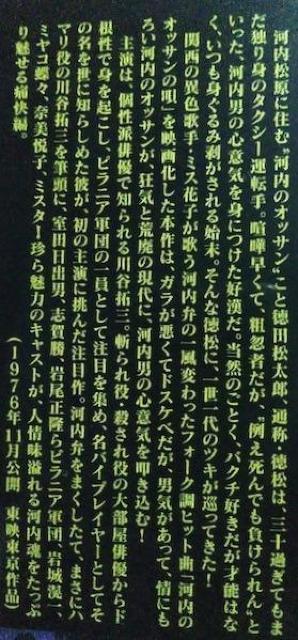 河内松原に住む〝河内のオッサン〟こと徳田松太郎、通称 徳松は、三十過ぎてもま
だ独り身のタクシー運転手。喧嘩早くて、粗忽者だが、「例え死んでも負けられん」と
いった、河内男の心意気を身につけた好漢だ。当然のごとく、バクチ好きだが才能はな
く、いつも身ぐるみ剥がされる始末。そんな徳松に、一世一代のツキが巡ってきた!
関西の異色歌手・ミス花子が歌う河内弁の一風変わったフォーク調ヒット曲「河内の
オッサンの唄」を映画化した本作は、ガラが悪くてドスケベだが、男気があって、情にも
ろい河内のオッサンが、狂気と荒廃の現代に、河内男の心意気を叩き込む!
主演は、個性派俳優で知られる川谷拓三。斬られ役、殺され役の大部屋俳優からド
根性で身を起こし、ピラニア軍団の一員として注目を集め、名バイプレイヤーとしてそ
の名を世に知らしめた彼が、初の主演に挑んだ注目作。河内弁をまくしたて、まさにハ
マリ役の川谷拓三を筆頭に、室田日出男、志賀勝、岩尾正隆らピラニア軍団、岩城滉一、
ミヤコ蝶々、奈美悦子、ミスター珍ら魅力のキャストが、人情味溢れる河内魂をたっぷ
り魅せる痛快編。
(1976年11月公開 東映東京作品)